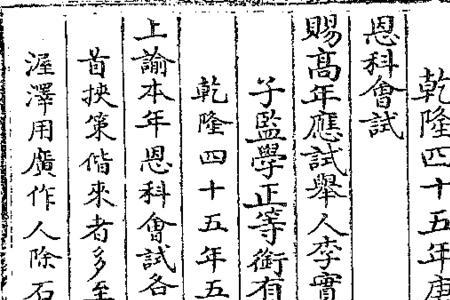 乾隆四十五年庚
恩科會試
賜高年應試舉人李實
子監學正等銜有
乾隆四十五年五
上諭本年恩科會試各
首挾策偕來者多至
渥澤用廣作人除石